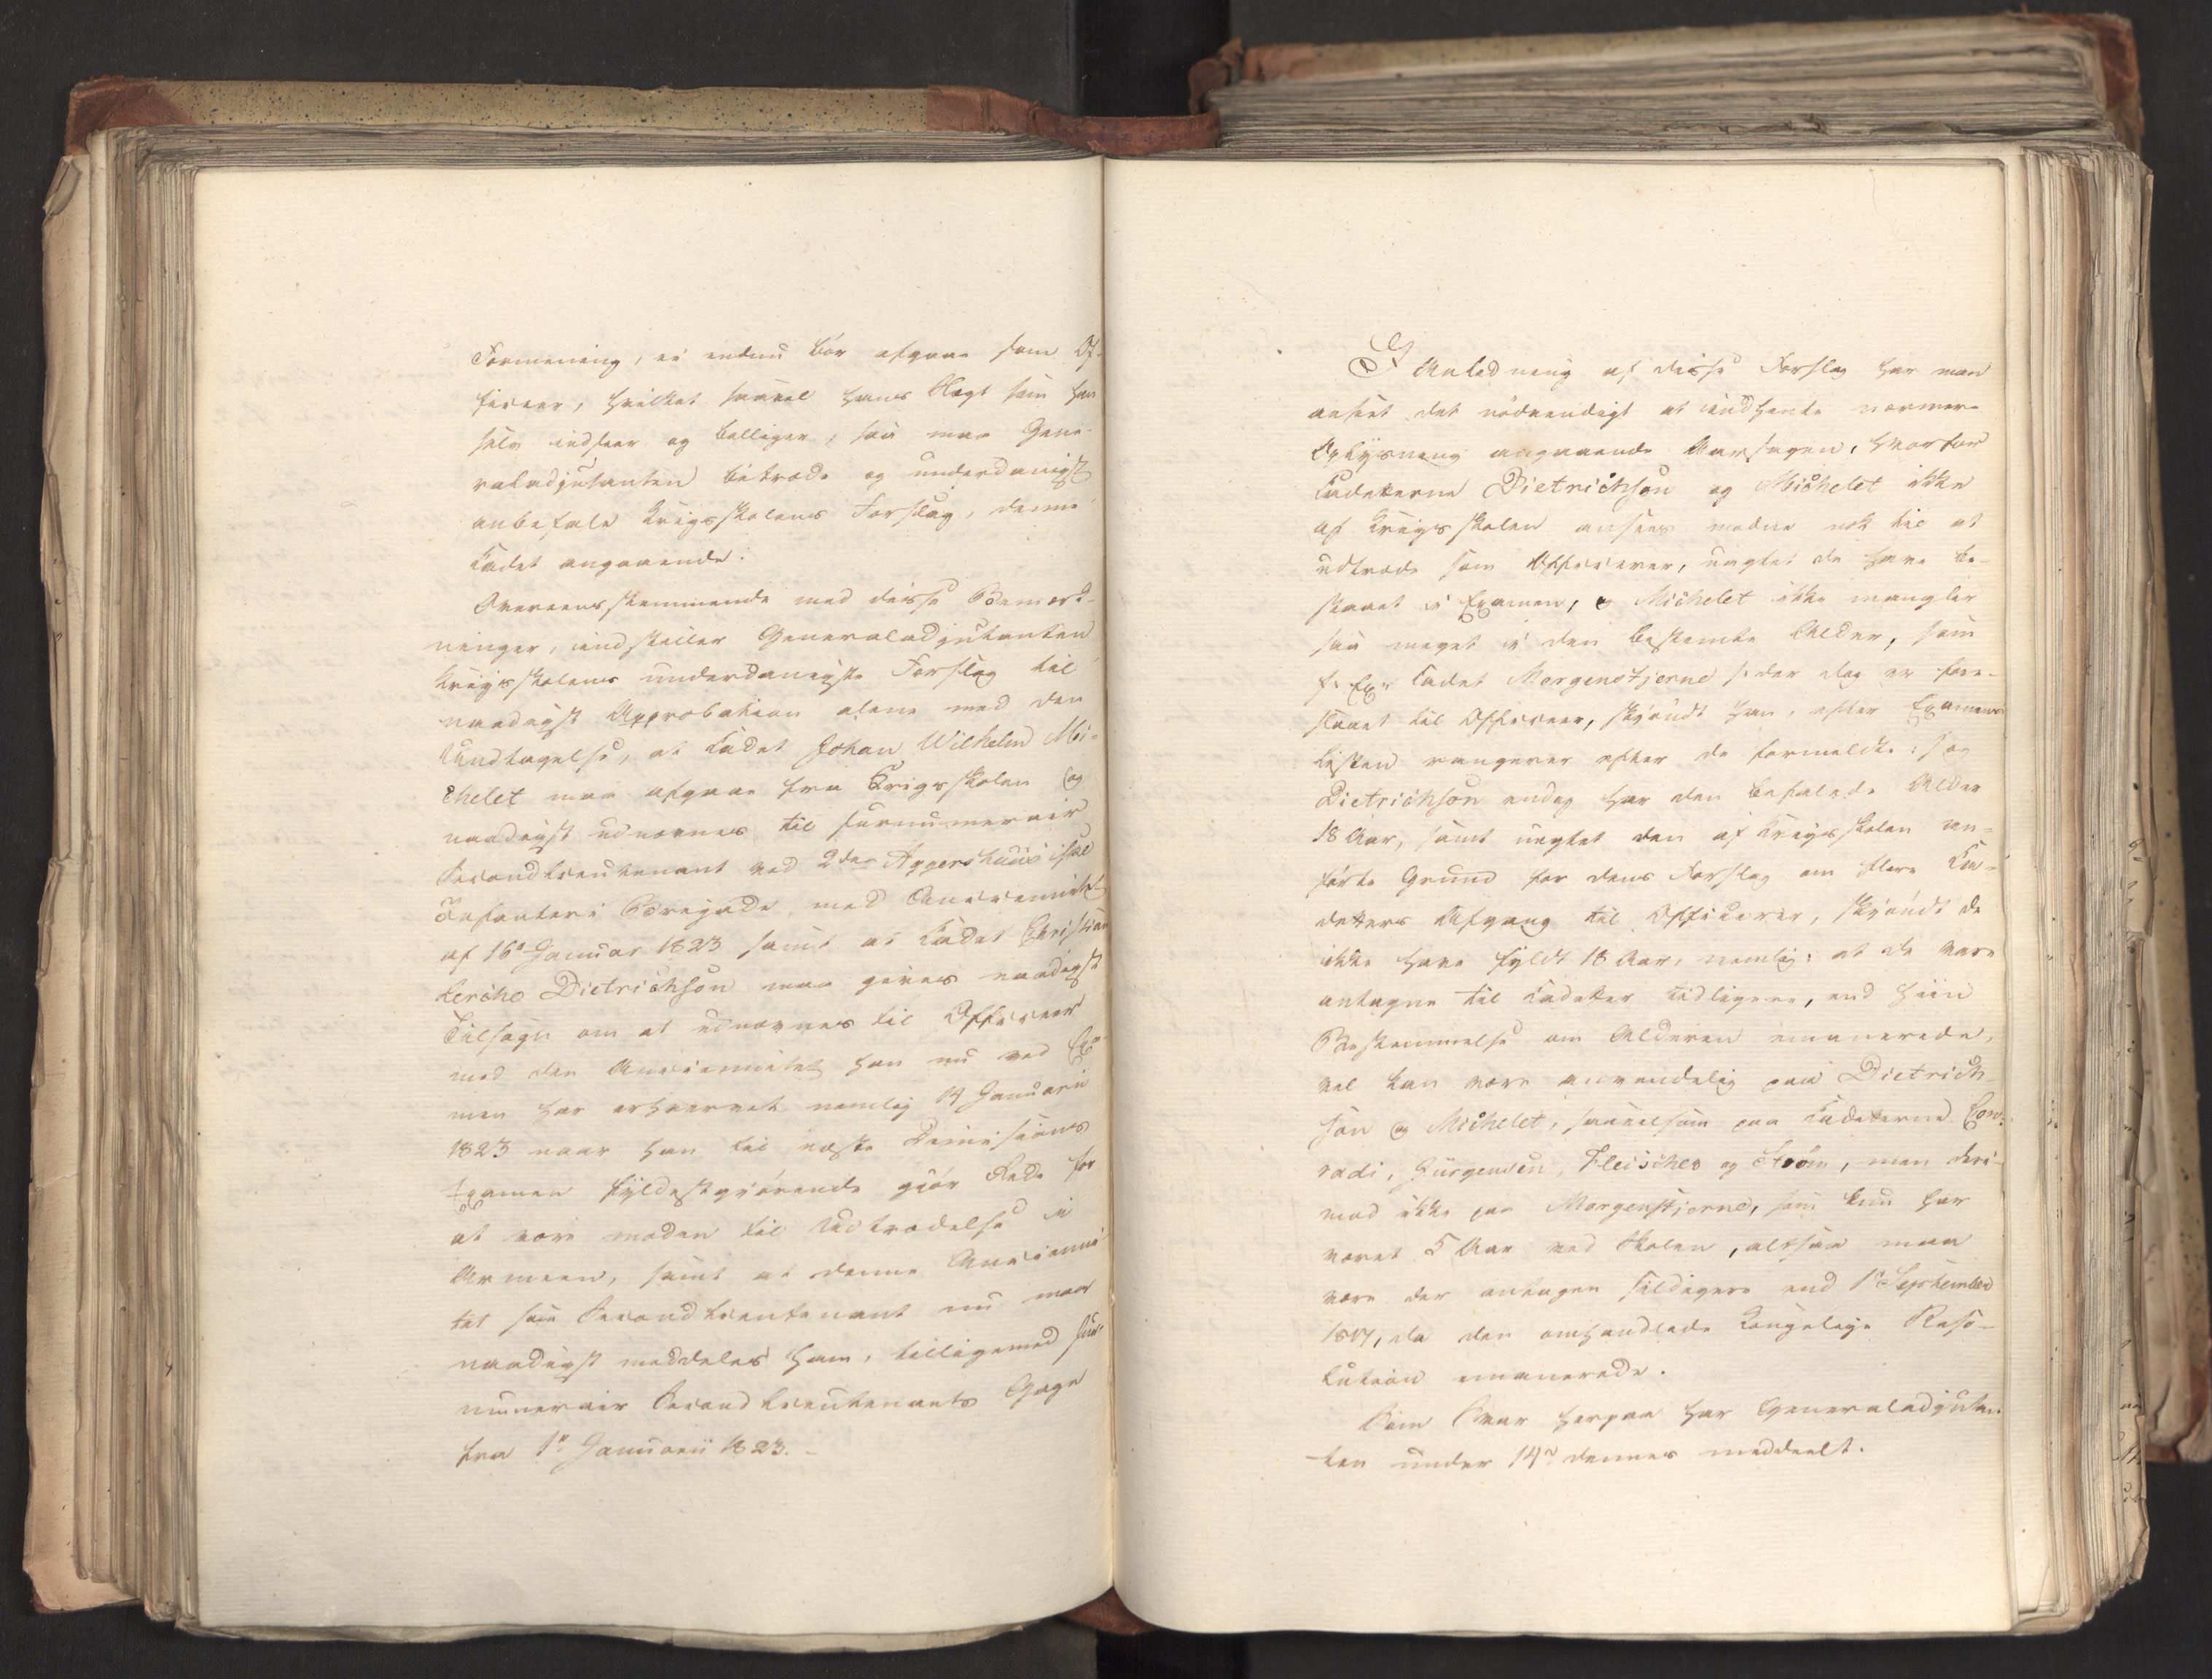 Formening, ei endnu bør afgaae som Of-
ficeer, hvilket saavel hans Slægt som han
selv indseer og billiger, saa maa Gene-
raladjutanten betræde og underdanigst
anbefale Krigsskolens Forslag, denne
Cadet angaaende.
Overeensstemmende med disse Bemærk-
ninger, indstiller Generaladjutanten
Krigsskolens underdanigste Forslag til
naadigst Approbation alene med den
Undtagelse, at Cadet Johan Wilhelm Mi-
chelet maa afgaae fra Krigsskolen og
naadigst udnævnes til surnumerair
Secondlieutenant ved 2den Aggershuusiske
Infanteri Brigade, med Anciennitet
af 16de Januar 1823 samt at Cadet Christian
Lerche Dietrichson maa gives naadigst
Tilsagn om at udnævnes til Officeer
med den Anciennitet han nu ved Exa-
men har erhvervet nemlig 14 Januarii
1823 naar han til næste Demissions
Examen fyldestgjørende gjør Rede for
at være moden til Udtrædelse i
Armeen, samt at denne Ancienni-
tet som Secondlieutenant nu maa
naadigst meddeles ham, tilligemed sur-
numerair Secondlieutenants Gage
fra 1ste Januarii 1823.
I Anledning af disse Forslag har man
anseet det nødvendigt at indhente nærmere
Oplysning angaaende Aarsagen, hvorfor
Cadetterne Dietrichson og Michelet ikke
af Krigsskolen ansees modne nok til at
udtræde som Officerer, uagtet de have be-
staaet i Examen, og Michelet ikke mangler
saa meget i den bestemte Alder, som
f: Ex: Cadet Morgenstjerne /: der dog er fore-
slaaet til Officeer, skjøndt han, efter Examens
Listen rangerer efter de formeldte :/ og
Dietrichson endog har den befalede Alder
18 Aar, samt uagtet den af Krigsskolen an-
førte Grund for dens Forslag om flere Ca-
detters Afgang til Officerer, skjøndt de
ikke have fyldt 18 Aar, nemlig: at de vare
antagne til Cadetter tidligere, end hiin
Bestemmelse om Alderen emanerede,
vel kan være anvendelig paa Dietrich-
son og Michelet, saavelsom paa Cadetterne Con-
radi, Jürgensen, Fleischer og Strøm, men deri-
mod ikke paa Morgenstjerne, som kun har
været 5 Aar ved Skolen, altsaa maa
være der antagen sildigere end 1ste September
1817, da den omhandlede Kongelige Reso-
lution emanerede.
Som Svar herpaa har Generaladjutan-
ten under 14de dennes meddeelt.